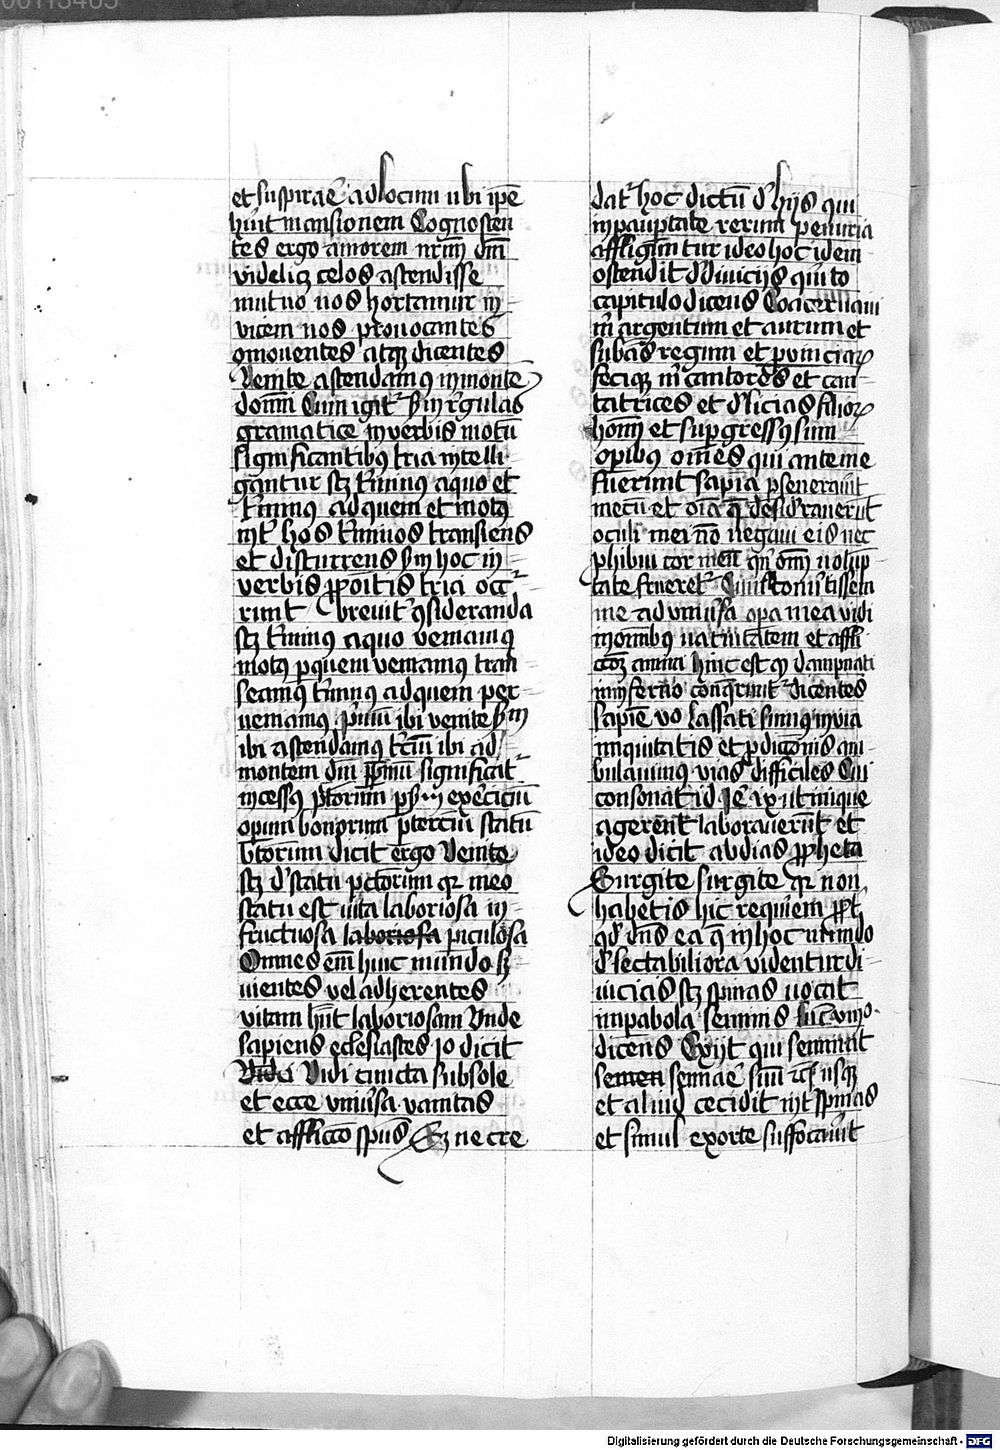 et suspirare ad locum ubi ipe
hnt mansionem Cognoscen
tes ergo amorem nrm dm
videlicz celos ascendisse
mutuo nos hortamur in
vicem nos provocantes
omouentes atqz dicentes
Venite ascendamus in monte
domini Cum igitr sm regulas
gramatice in verbis motu
significantibus tria intelli
gantur scz tminus a quo et
tminus ad quem et motus
intr hos tminos transiens
et discurrens sm hoc in
verbis ppoitis tria occr
runt breuitr gsideranda
scz tminus a quo veniamus
motus per quem veniamus tran
seamus tminus ad quem per
veniamus primu ibi venite sm
ibi ascendamus terciu ibi ad
montem dni ppmu significatr
incessus pctorum per sm exerciciu
operum bonorum per terciu statu
btorum dicit ergo Venite
scz de statu pctorum qr meo
statu est vita laboriosa in
fructuosa laboriosa piculosa
Omnes em huic mundo s
uientes vel adherentes
vitam hnt laboriosam Vnde
sapiens eclesiastes io dicit
Vidi Vidi cuncta sub sole
et ecce vniuersa vanitas
et afflicco spus Et ne cre
datr hoc dictu de hijs qui
in paupertate rerum penuria
affliguntur ideo hoc idem
ostendit de diuicijs quito
capitulo dicens Coaceruaui
m argentum et aurum et
subas regum et prouinciarum
feciqz m cantores et can
tatrices et delicias filiorum
homi et supergressus sum
opibus omes qui ante me
fuerunt sapia perseuerauit
mecu et oia que desiderauerut
oculi mei no negaui eis nec
phibui cor meu qn omi volup
tate frueretr Cumqz conuertissem
me ad vniuersa opera mea vidi
in omnibus uanitatem et affli
ccoez animi hinc est qz dampnati
in inferno conqrunt dicentes
sapie vo Lassati sumus in via
iniquitatis et perdiconis am
bulauimus vias difficiles Cui
consonat id Je ix ut inique
agerent laborauerunt et
ideo dicit abdias ppheta
Surgite surgite qr non
habetis hic requiem ppt
qd dns ea que in hoc mundo
delectabiliora videntur di
uicias scz spinas vocat
in parabola seminis luc viijo
dicens Exijt qui seminat
semen seminare suu etc usqz
et aliud cecidit int spinas
et simul exorte suffocauert
Digitalisierung gefördert durch die Deutsche Forschungsgemeinschaft - DFG